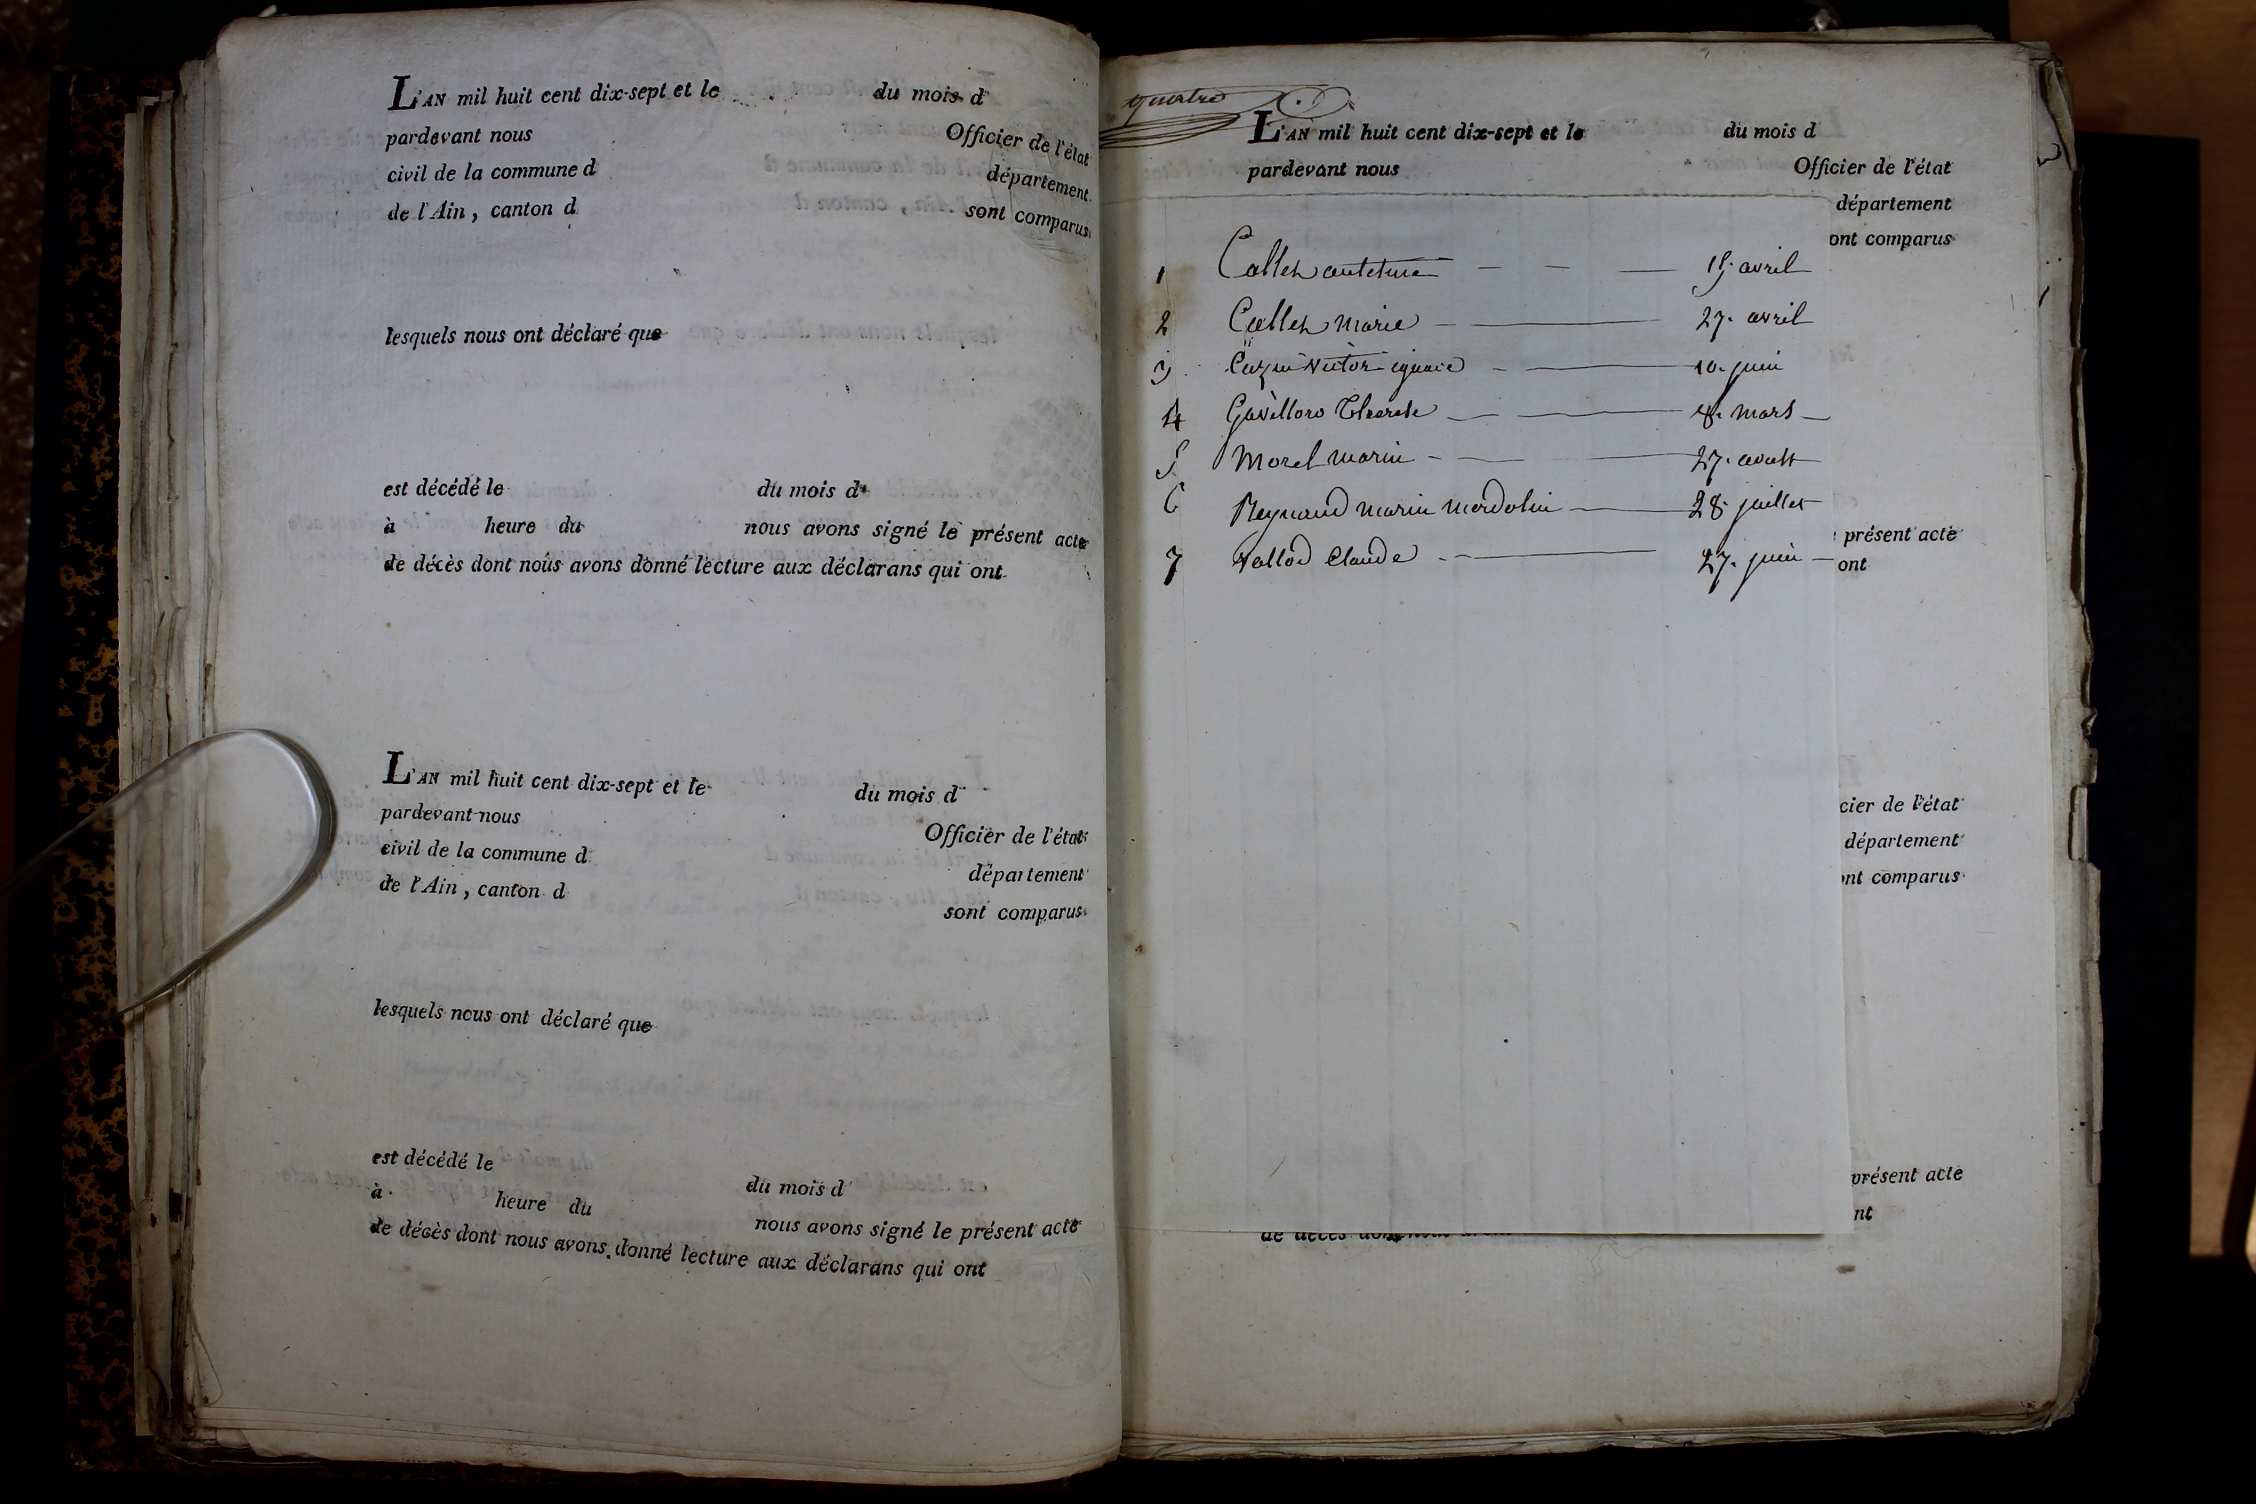 L'AN mil huit cent dix-sept et le du mois d
pardevant nous Officier de l'état
civil de la commune d département
de l'Ain, canton d sont comparus
lesquels nous ont déclaré que
est décédé le du mois d
à heure du nous avons signé le présent acte
de décès dont nous avons donné lecture aux déclarans qui ont
L'AN mil huit cent dix-sept et le du mois d
pardevant nous Officier de l'état
civil de la commune d département
de l'Ain, canton d sont comparus
lesquels nous ont déclaré que
est décédé le du mois d
à heure du nous avons signé le présent acte
de décès dont nous avons donné lecture aux déclarans qui ont
quatre
L'AN mil huit cent dix-sept et le du mois d
pardevant nous Officier de l'état
département
ont comparus
1 Callet avril
2 Callet marie 27. avril
3 victor ignace 10. juin
4 8. mars
5 Morel marie 27. aoust
6 Reynaud marie 28. juillet
7 vallod Claude 27. juin
présent acte
ont
cier de l'état
département
nt comparus
présent acte
nt
de décès